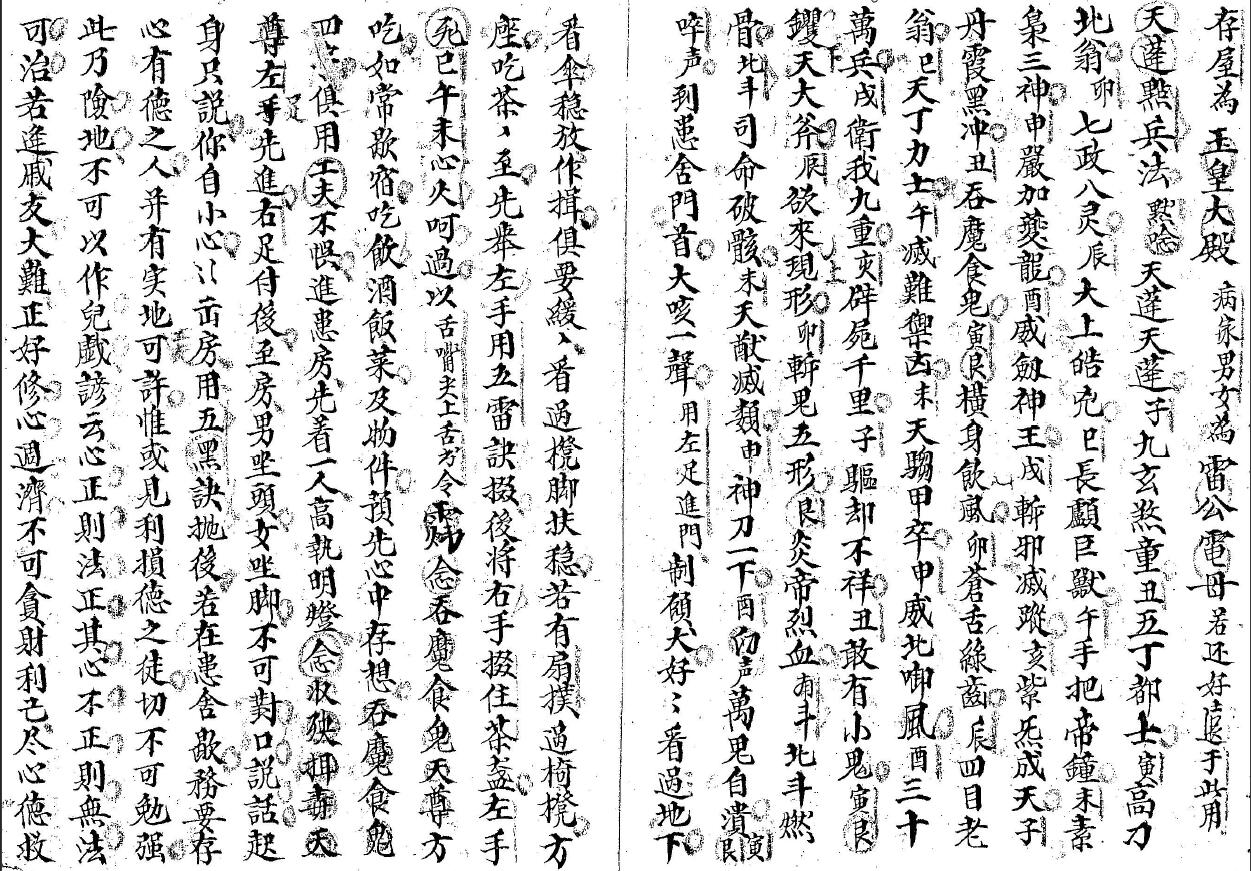 存屋為玉皇大殿 病家男女為雷公電母 若还好退手此用
天蓬㸃兵法 黙念 天蓬天蓬子九玄煞童丑五丁都士寅高刀
北翁卯七政八灵辰大上皓兇巳長顱巨獸午手把帝鐘未素
梟三神申嚴加夔龍酉威劍神王戌斬邪滅蹤亥紫炁成天子
丹霞黑冲丑吞魔食鬼寅艮橫身飲風卯蒼舌綠齒辰四目老
翁巳天丁力士午滅難禦凶未天騶甲卒申威北啣風酉三十
萬兵戌衛我九重亥辟屍千里子驅却不祥丑敢有小鬼寅艮
钁天大斧辰欲來現形卯斬鬼五形艮炎帝烈血 斗北斗燃
骨北斗司命破骸未天猷滅類申神刀一下酉 声萬鬼自潰寅艮
啐声到患舍門首大咳一聲 用左足進門 制頋大好〻看過地下
看傘穏放作揖俱要緩〻看過櫈脚扶穏若有扇撲過椅櫈方
座吃茶〻至先舉左手用五雷訣掇後将右手掇住茶盞左手
死巳午未心久呵過以 舌嘴 上舌 令 念吞魔食鬼天尊方
吃如常歇宿吃飲酒飯菜及物件預先心中存想吞魔食鬼
四 〻俱用工夫不悮進患房先着一人高執明燈念収 天
尊左手先進右足付後至房男坐頭女坐脚不可對口説話起
身只説你自小心〻出房用五黑訣抛後若在患舍歇務要存
心有德之人并有实地可許惟或見利損德之徒切不可勉强
此乃險地不可以作兒戱諺云心正則法正其心不正則無法
可治若進戚友大難正好修心週濟不可貪財利己尽心德救